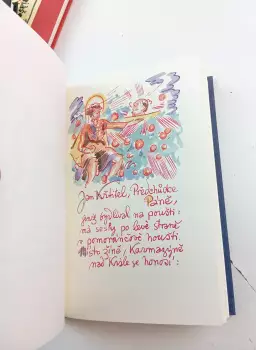 Jan Křtitel, Předchůdce
Páně,
jenž bydlíval na poušti:
má sesly po levé straně
v pomorančové houšti.
sto žíně, Karmazýně
nad Krále se honosí: